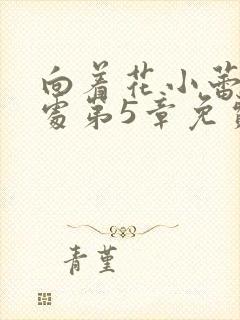 向着花小蕾
处第5章免费
青堇